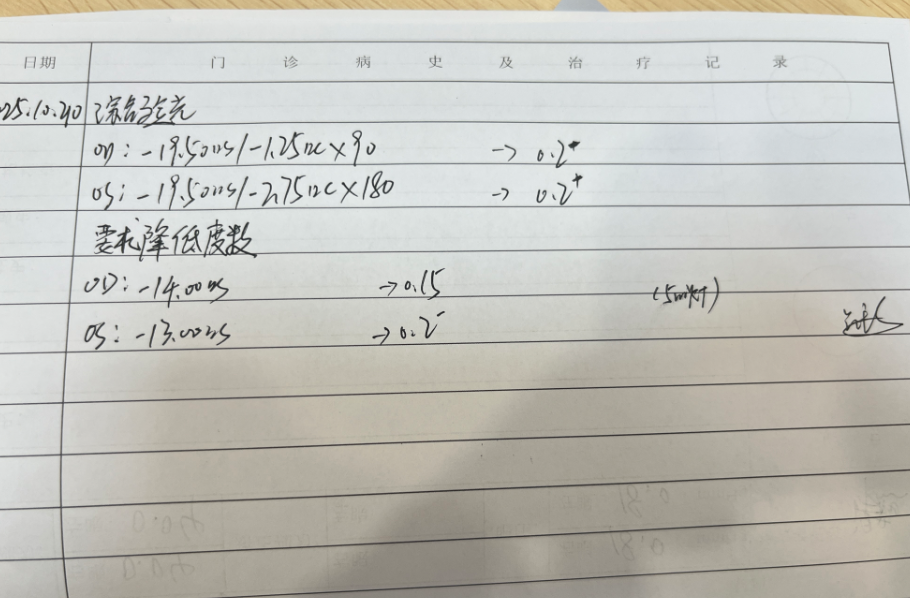 日期 门诊病史及治疗记录
25.10.20 综合验光
OD: -19.50DS/-1.25DC×90 → 0.2⁺
OS: -19.50DS/-2.75DC×180 → 0.2⁺
要求降低度数
OD: -14.00DS → 0.15
OS: -13.00DS → 0.2⁻